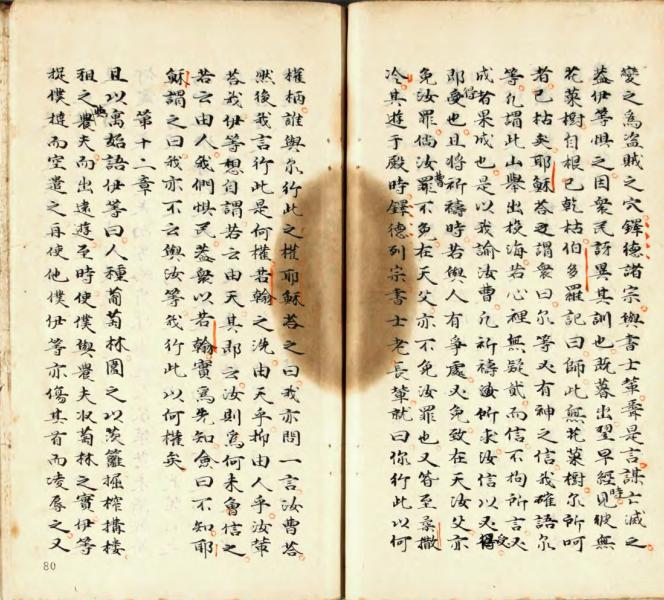 變之為盜賊之穴鐸德諸宗與書士輩聞是言謀亡滅之
蓋伊等懼之因衆民訝異其訓也既暮出城早經時見彼無
花菓樹自根已乾枯伯多羅記曰師此無花菓樹尔所呵
者已枯矣耶穌荅之謂衆曰尔等又有神之信我確語尔
等凡謂此山舉出投海若心裡無疑貳而信不拘所言必
成者果成也是以我諭汝曹凡祈禱所求汝信以必得受
即受也且將祈禱時若與人有爭處必免致在天汝父亦
免汝罪倘汝曹罪不免在天父亦不免汝罪也又荅至柔撒
冷其遊于殿時鐸德列宗書士老長輩就曰你行此以何
權柄誰與尔行此之權耶穌荅之曰我亦問一言汝曹荅
然後我言行此是何權若翰之洗由天乎抑由人乎汝輩
荅我伊等想自謂若云由天其即云汝則為何未曾信之
若云由人我們惧民蓋衆以若翰實為先知僉曰不知耶
穌謂之曰我亦不云與汝等我行此以何權矣
第十二章
且以寓始語伊等曰人種葡萄林園之以茨籬掘榨搆樓
租之與農夫而出遠遊至時使僕與農夫收萄林之實伊等
捉僕撻而空遣之再使他僕伊等亦傷其首而凌辱之又
80